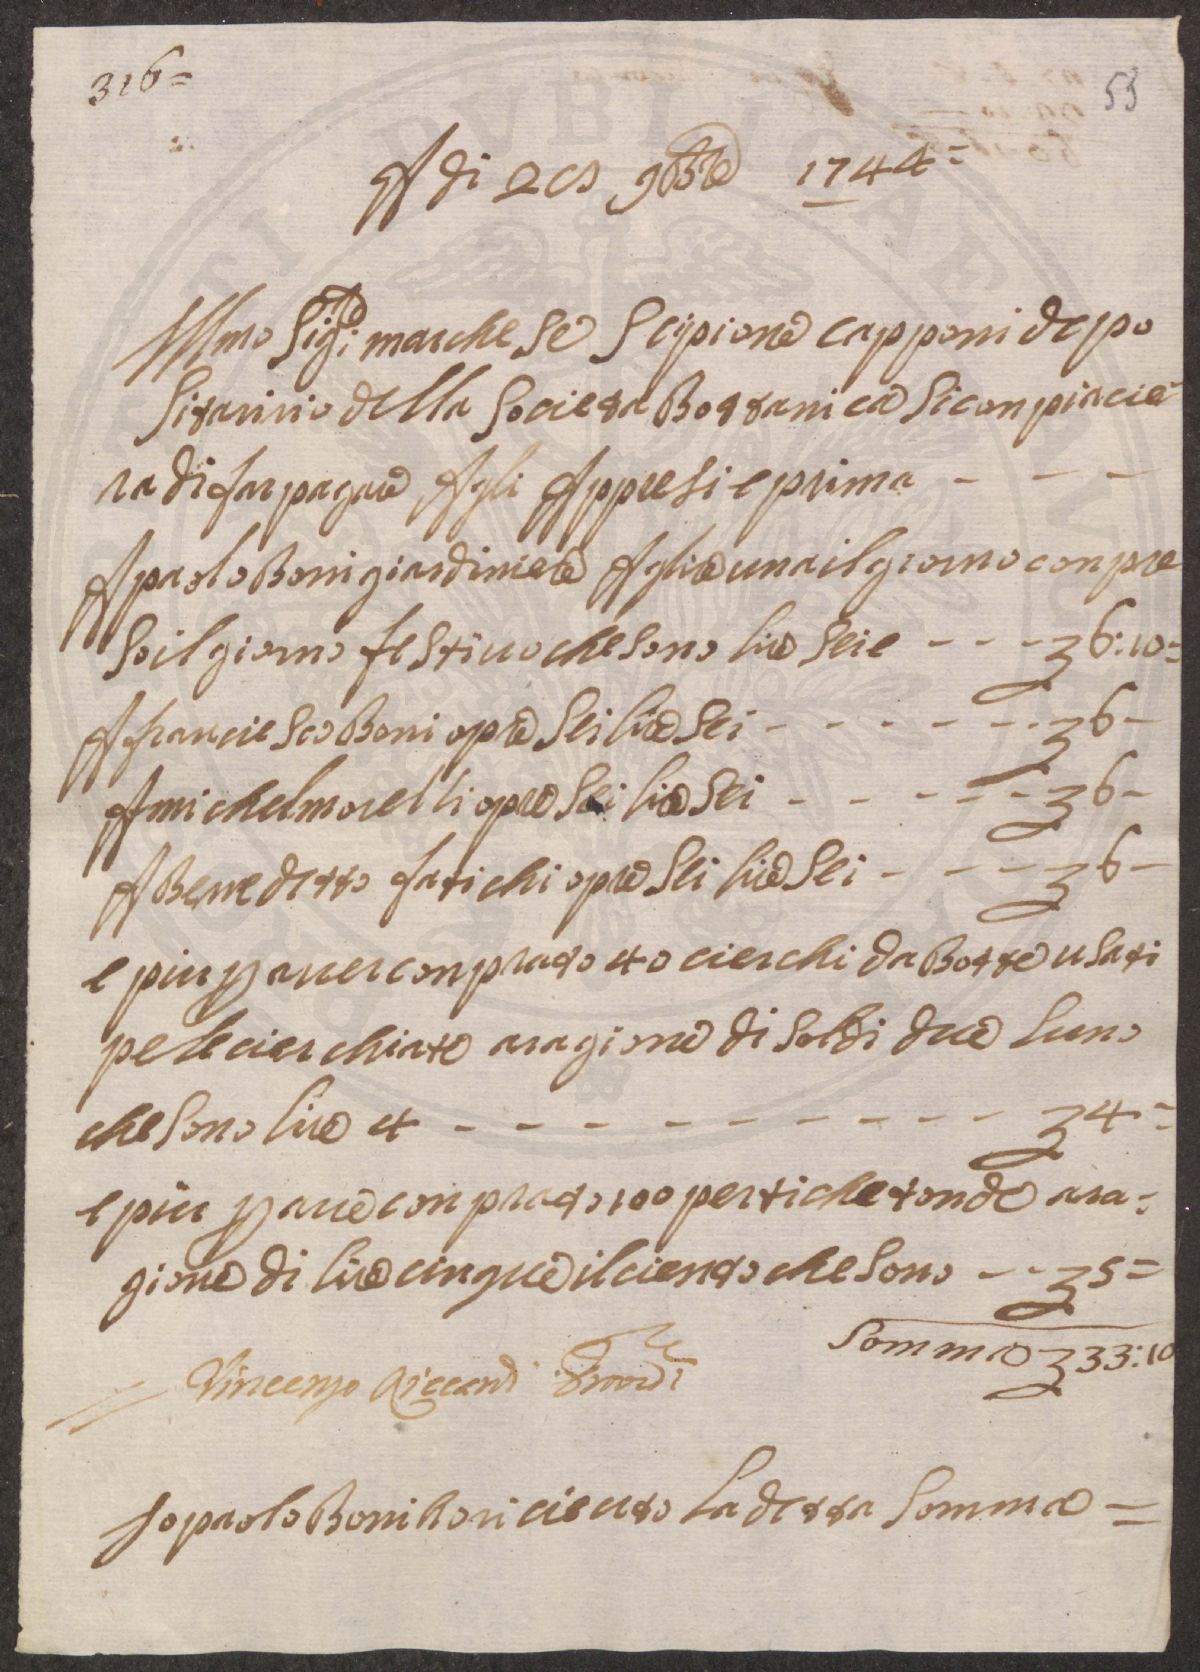 316=
55
A di 28 9bre 1744=
Illmo Sigre: marchese Scipione capponi depo
sitaririo della Societa Bottanica si conpiacie
ra di far pagare Agli Appresi e prima - - -
A paolo Boni giardiniere A lire una il giorno conpre
so il giorno festiuo che sono lire seie - - - 36:10=
A franciesco Boni opre sei lire sei - - - - - - 36-
A michel morelli opre sei lire sei - - - - - 36-
A Benedetto fatichi opre sei lire sei - - - - 36-
e piu p auer conprato 40 cierchi da Botte usati
pe le cierchiate aragione di soldi due luno
che sono lire 4 - - - - - - - - - - 34=
e piu p aue conprato 100 pertiche tonde ara=
gione di lire cinque il ciento che sono - - 35=
Somma 333:10
Vincenzo Riccardi
Io paolo Boni ho riceuto la detta somma =